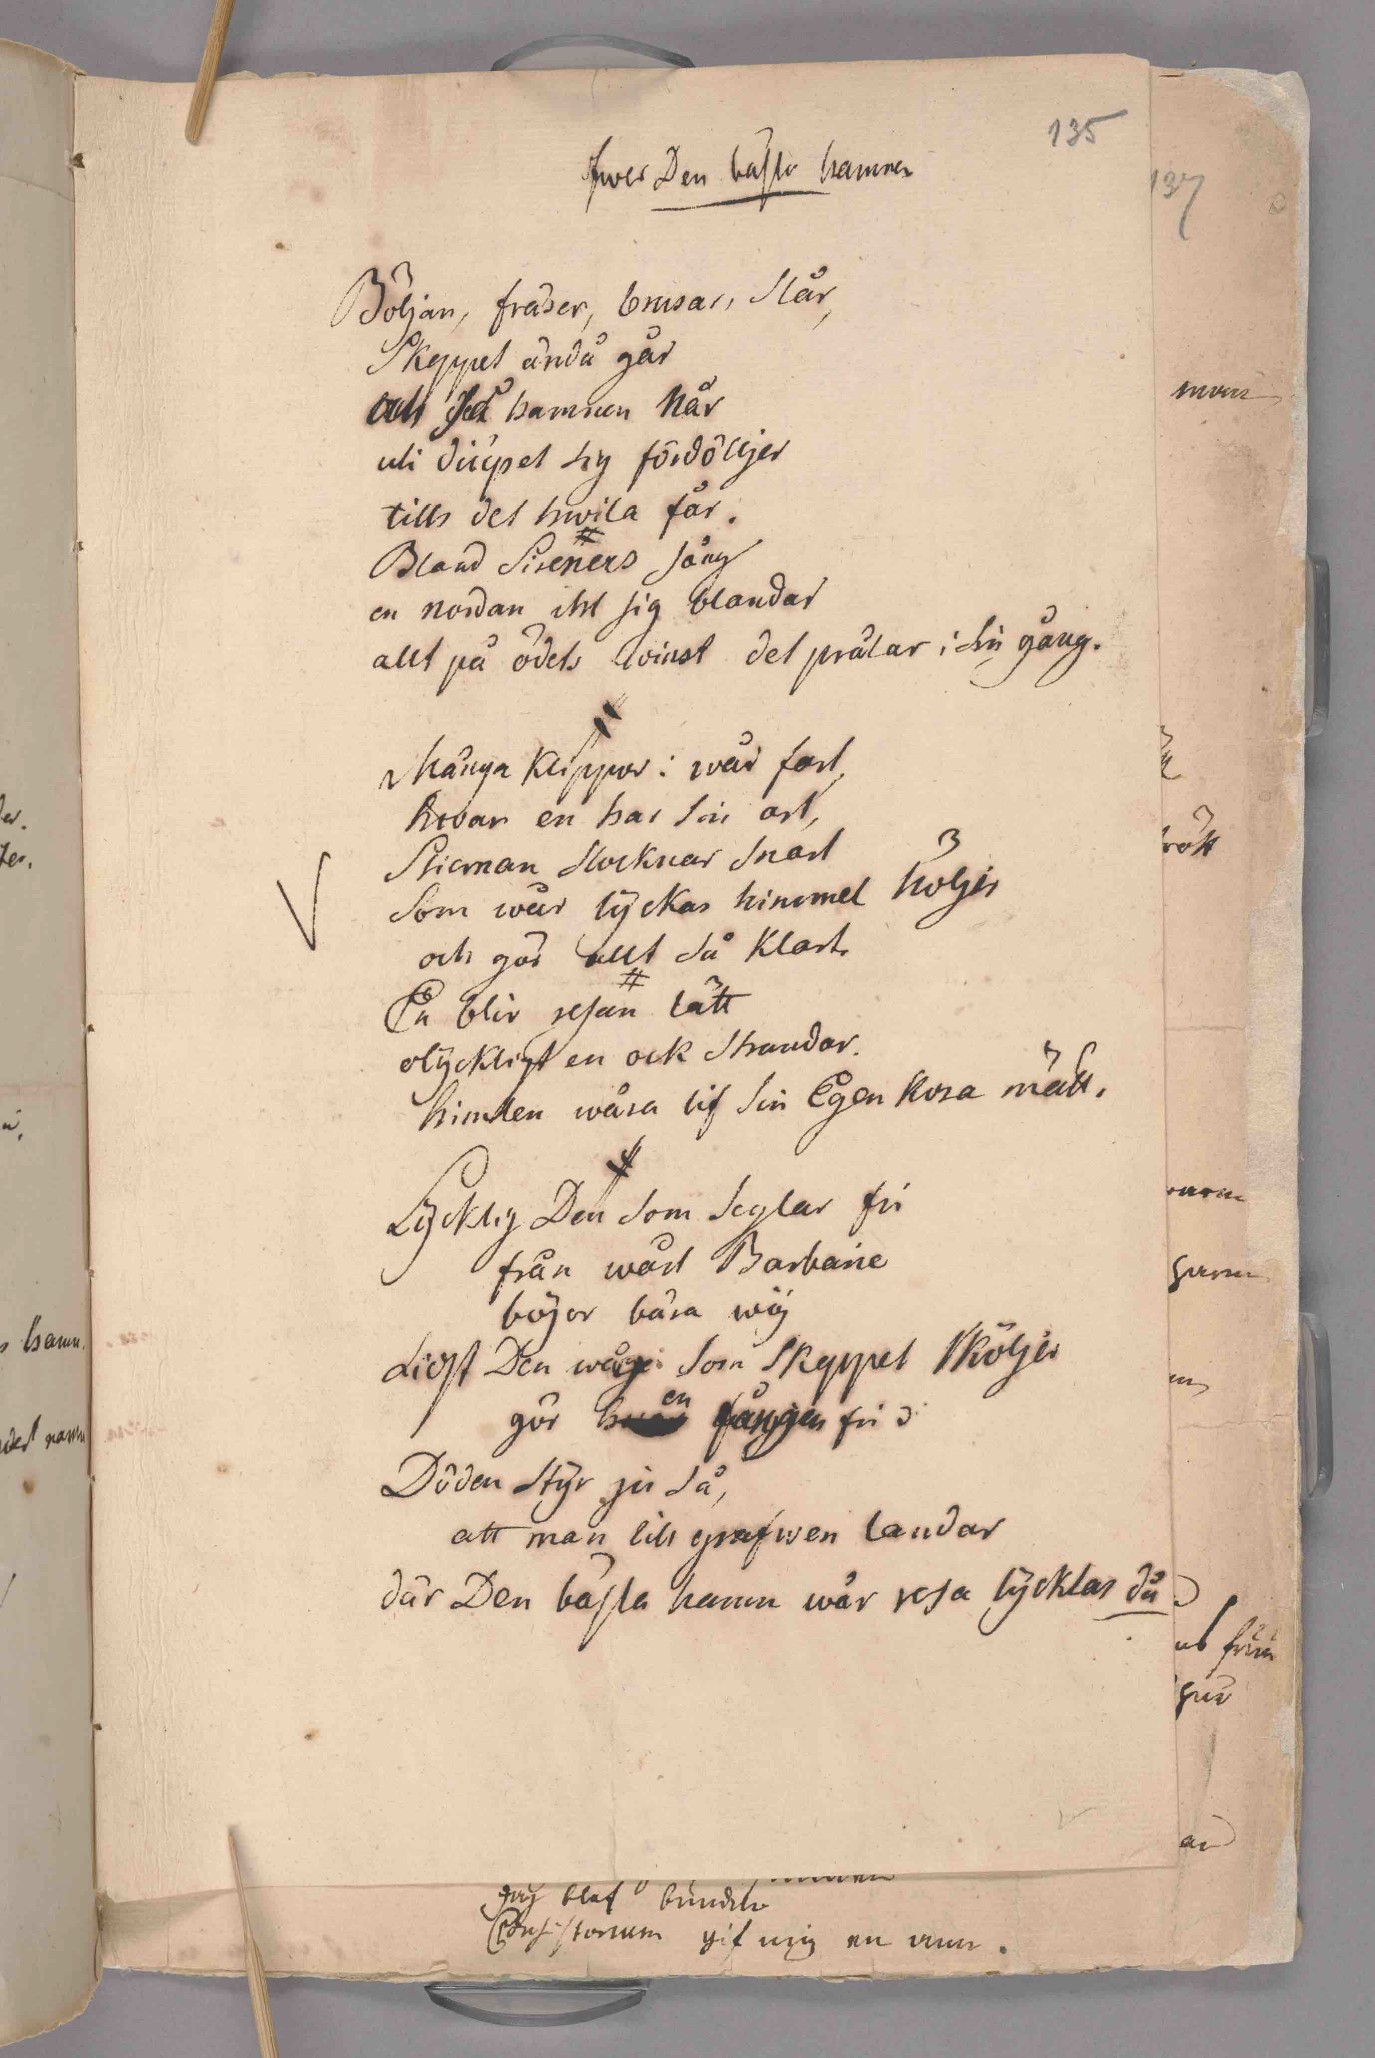 135
öfwer Den bästa hamnen
Böljan, fräser, brusar, slår,
Skeppet ändå går
och hamnen når
uti diupet sig fördölljer
tills det hwila får.
Bland Sireners sång
en nordan ihl sig blandar
allt på ödets winst det prålar i sin gång.
Många Klippor i wår fart,
hwar en har sin art,
Stiernan slocknar snart
Som wår lyckas himmel höljer
och gör allt så Klart.
En blir resan lätt
olyckligt en ock strandar.
himlen wåra lif sin Egen Kosa mätt.
Lycklig Den som Seglar fri
från wårt Barbarie
böjer bära wij
Ligst Den wåg som Skeppet sköljer
gör en fången fri
Döden styr ju så,
att man till grafwen landar
där Den bästa hamn wår resa lycklas då
137
hamn.
jag blef
gif mig en